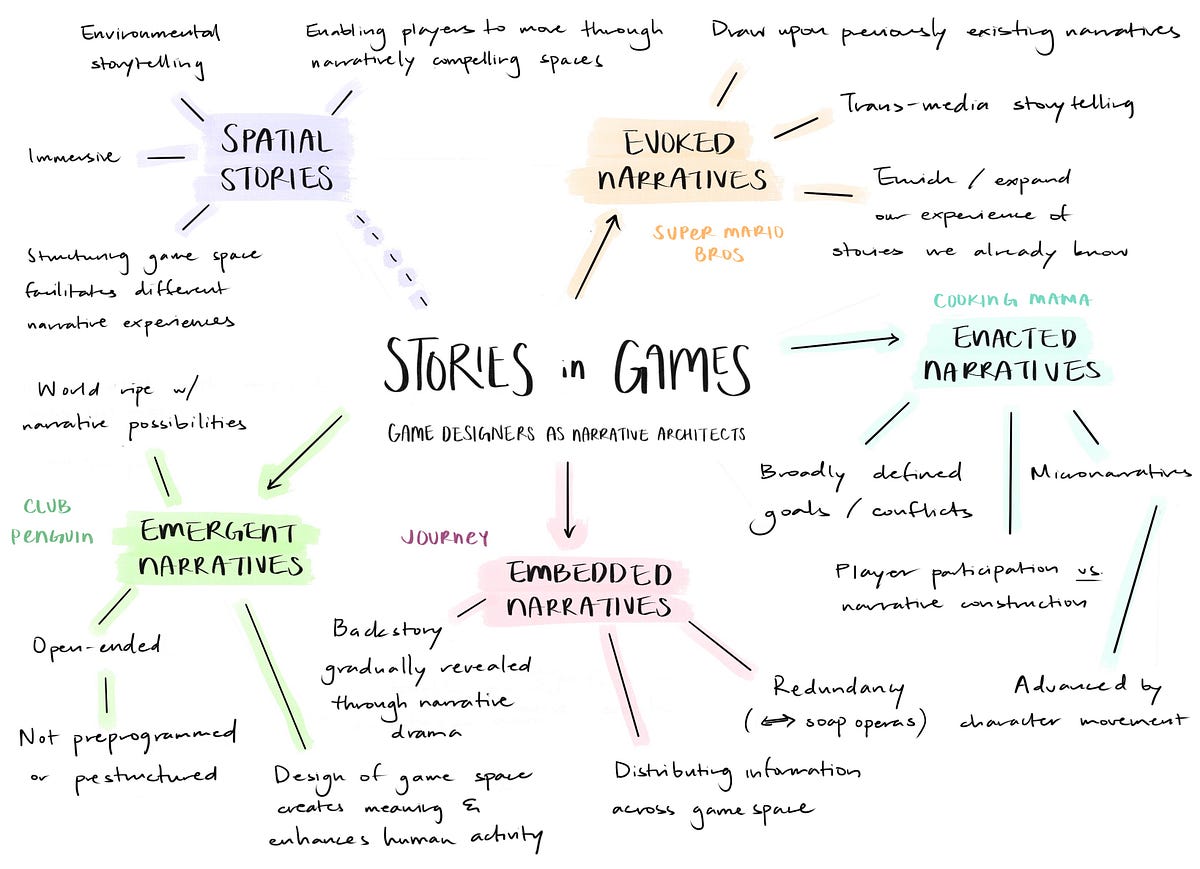 Environmental
storytelling
Enabling players to move through
narratively compelling spaces
SPATIAL
STORIES
Immersive
Structuring game space
facilitates different
narrative experiences
Draw upon previously existing narratives
Trans-media storytelling
EVOKED
NARRATIVES
Enrich / expand
our experience of
stories we already know
SUPER MARIO
BROS
COOKING MAMA
ENACTED
NARRATIVES
STORIES in GAMES
GAME DESIGNERS AS NARRATIVE ARCHITECTS
Broadly defined
goals / conflicts
Micronarratives
Player participation vs.
narrative construction
Advanced by
character movement
World ripe w/
narrative possibilities
CLUB
PENGUIN
EMERGENT
NARRATIVES
Open-ended
Not preprogrammed
or prestructured
Design of game space
creates meaning &
enhances human activity
JOURNEY
EMBEDDED
NARRATIVES
Backstory
gradually revealed
through narrative
drama
Redundancy
(⟺ soap operas)
Distributing information
across game space